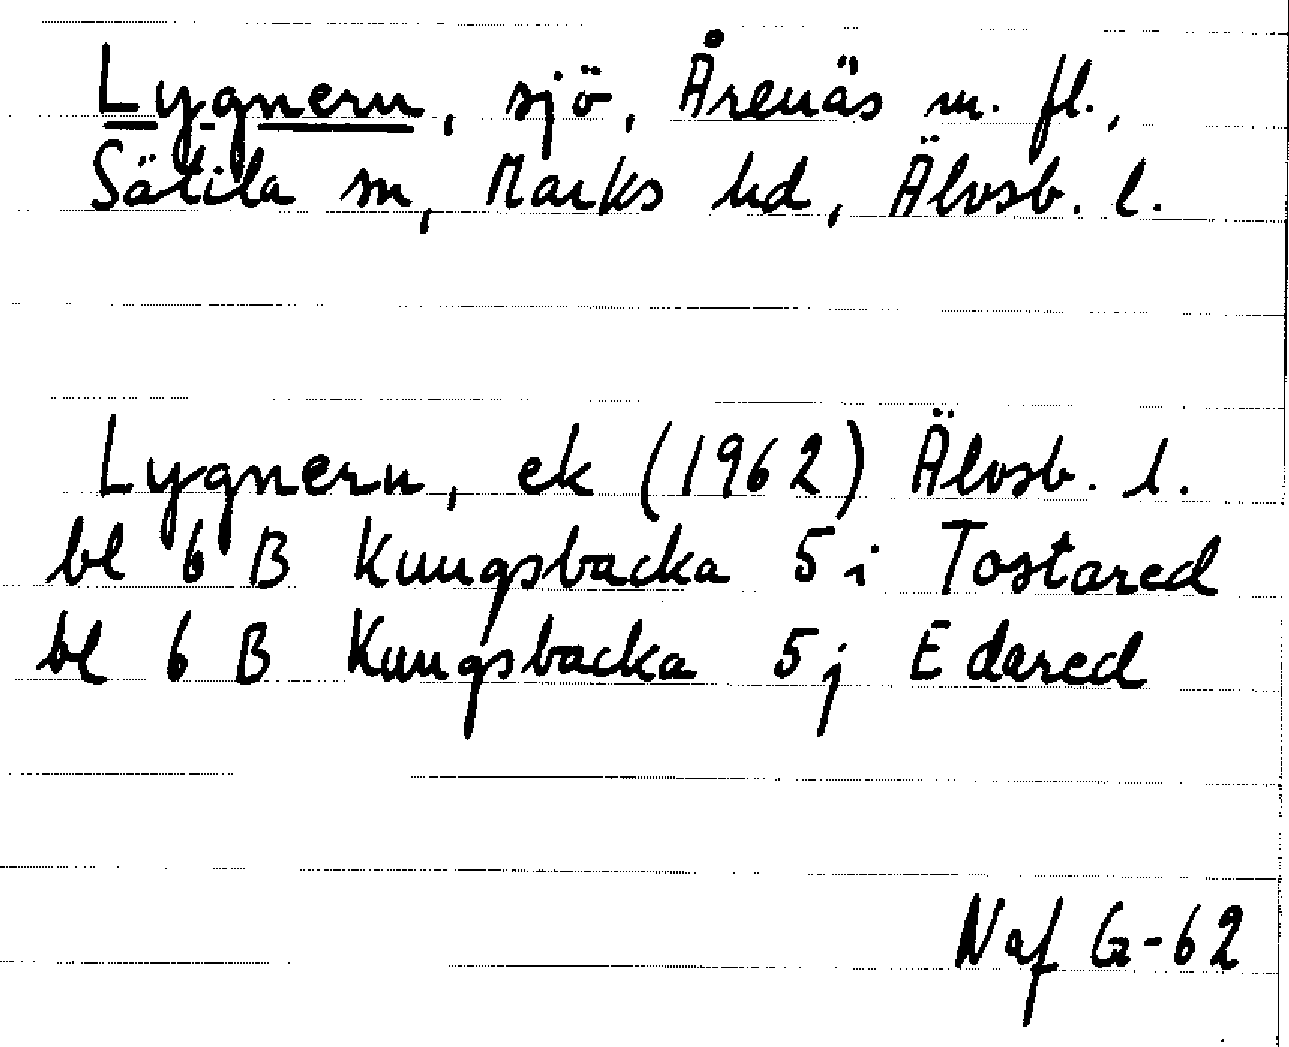 Lygnern, sjö, Årenäs m. fl.,
Sätila sn, Marks hd, Älvsb. l.
Lygnern, ek (1962) Älvsb. l.
bl 6 B Kungsbacka 5 i Tostared
bl 6 B Kungsbacka 5 j Edared
Naf G-62